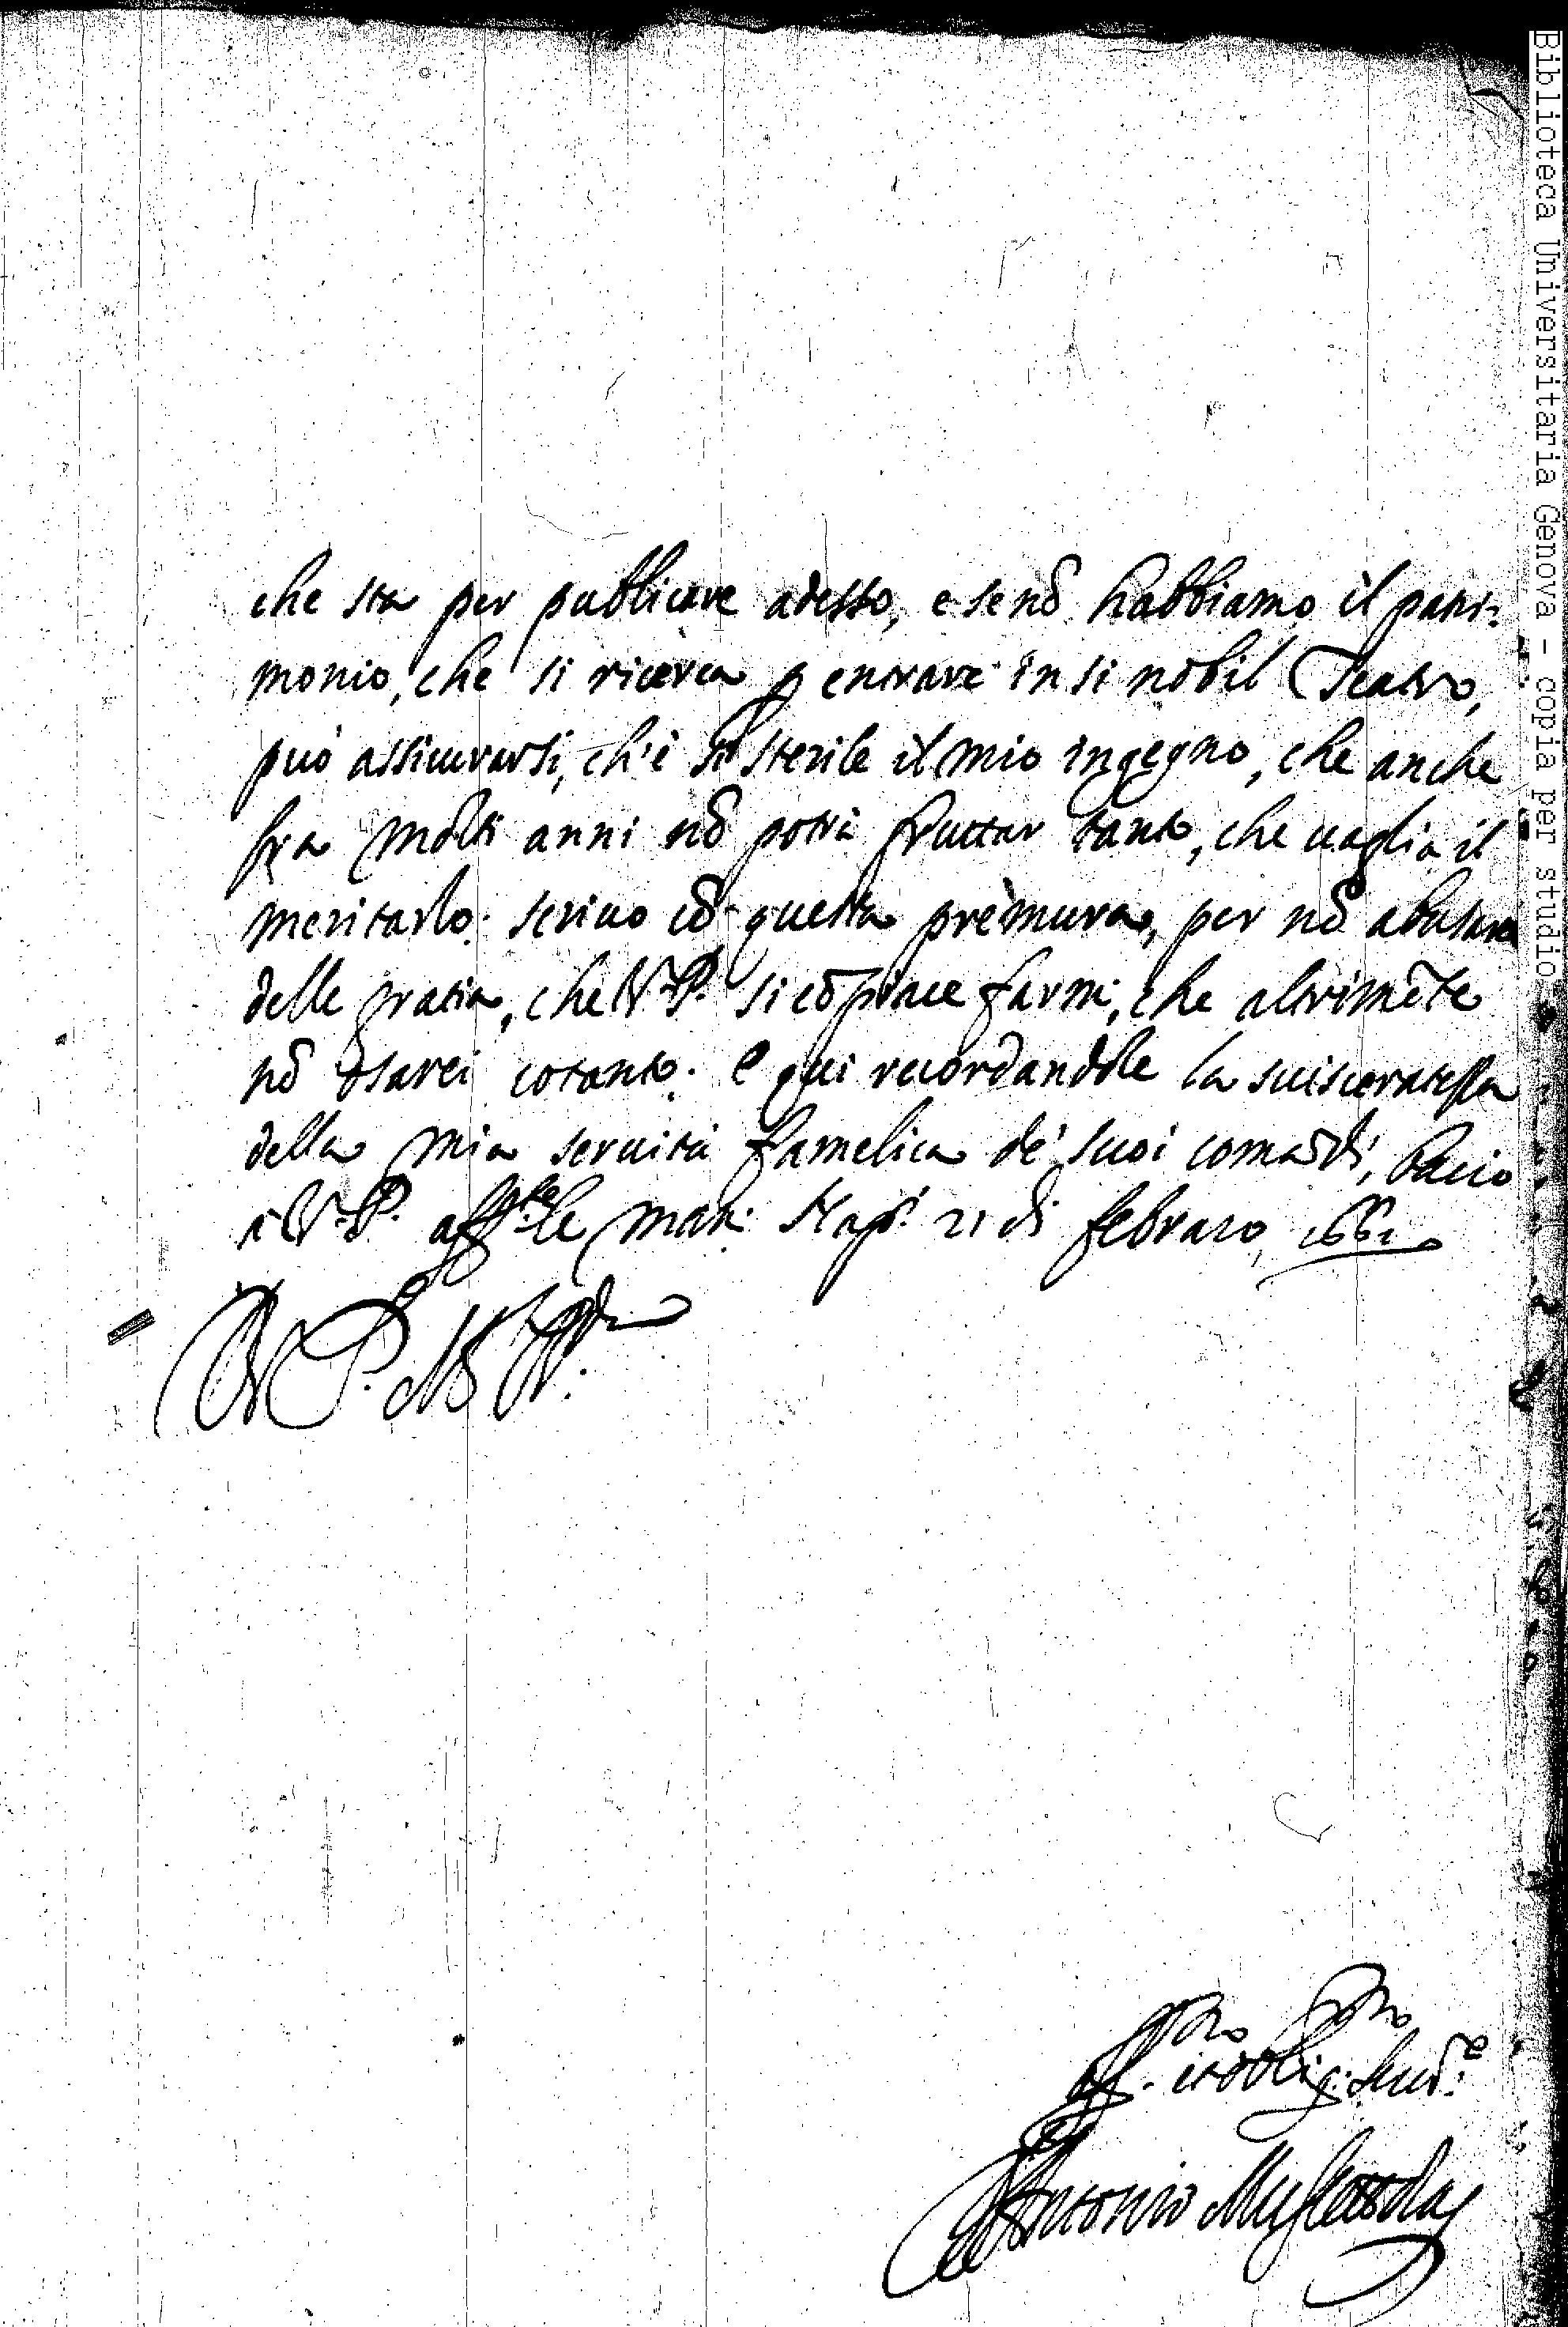 che sta per publicare adesso, e se nõ habbiamo il patri-
monio, che si ricerca p entrare in sì nobil Teatro,
può assicurarsi, ch'è sì sterile il mio ingegno, che anche
fra molti anni nõ potrà fruttar tanto, che uaglia il
meritarlo. scriuo cõ questa premura, per nõ abusare
delle gratia, che V. P. si cõpiace farmi, che altrimẽte
nõ osarei cotanto. e qui ricordandole la suisceratezza
della mia seruitù famelica de' suoi comãdi, bacio
à V. P. aff.te le mani Nap. 21 di febraro 1661
V. P. M. R.da
aff.mo et oblig.mo Seru.e
Antonio
Biblioteca Universitaria Genova - copia per studio